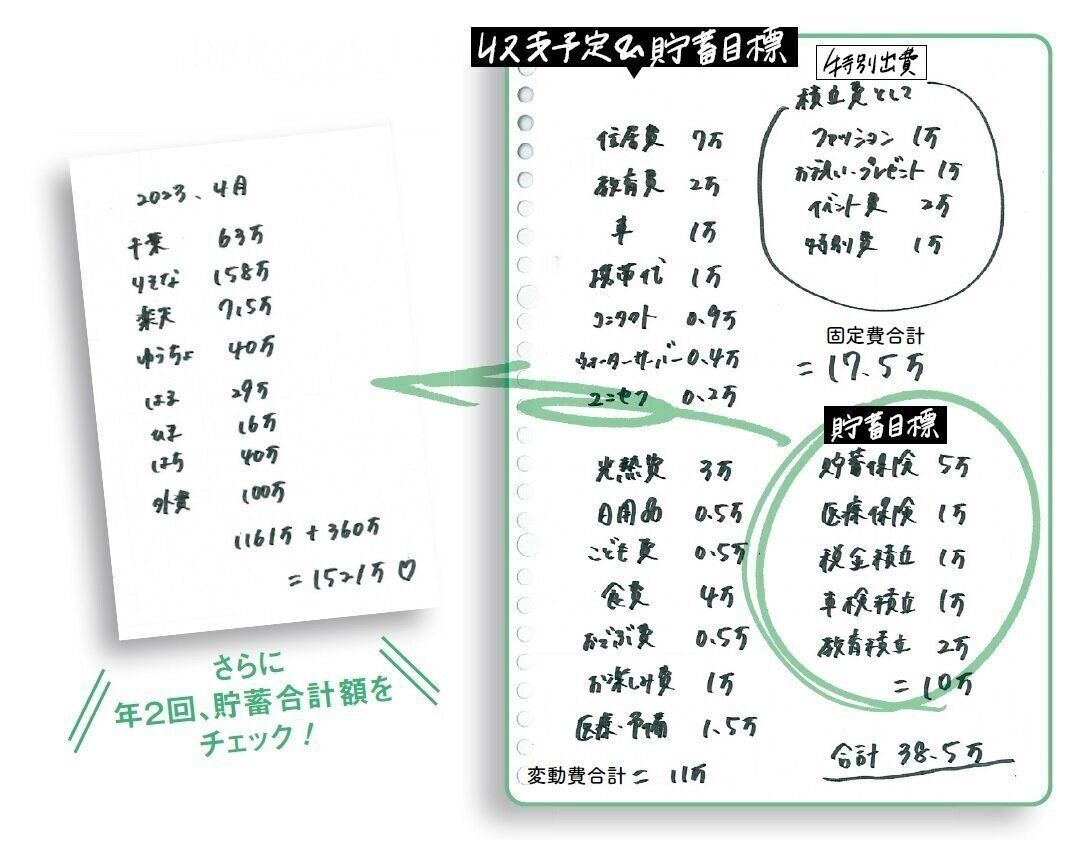 2023、4月
千葉 63万
りそな 158万
楽天 7.5万
ゆうちょ 40万
はる 29万
16万
はち 40万
外貨 100万
1161万+360万
=1521万♡
さらに
年2回、貯蓄合計額を
チェック!
収支予定&貯蓄目標
住居費 7万
教育費 2万
車 1万
携帯代 1万
コンタクト 0.9万
ウォーターサーバー 0.4万
ユニセフ 0.2万
特別出費
積立費として
ファッション 1万
お祝い・プレゼント 1万
イベント費 2万
特別費 1万
固定費合計
=17.5万
光熱費 3万
日用品 0.5万
こども費 0.5万
食費 4万
おでかけ費 0.5万
お楽しみ費 1万
医療・予備 1.5万
変動費合計=11万
貯蓄目標
貯蓄保険 5万
医療保険 1万
税金積立 1万
車検積立 1万
教育積立 2万
=10万
合計 38.5万